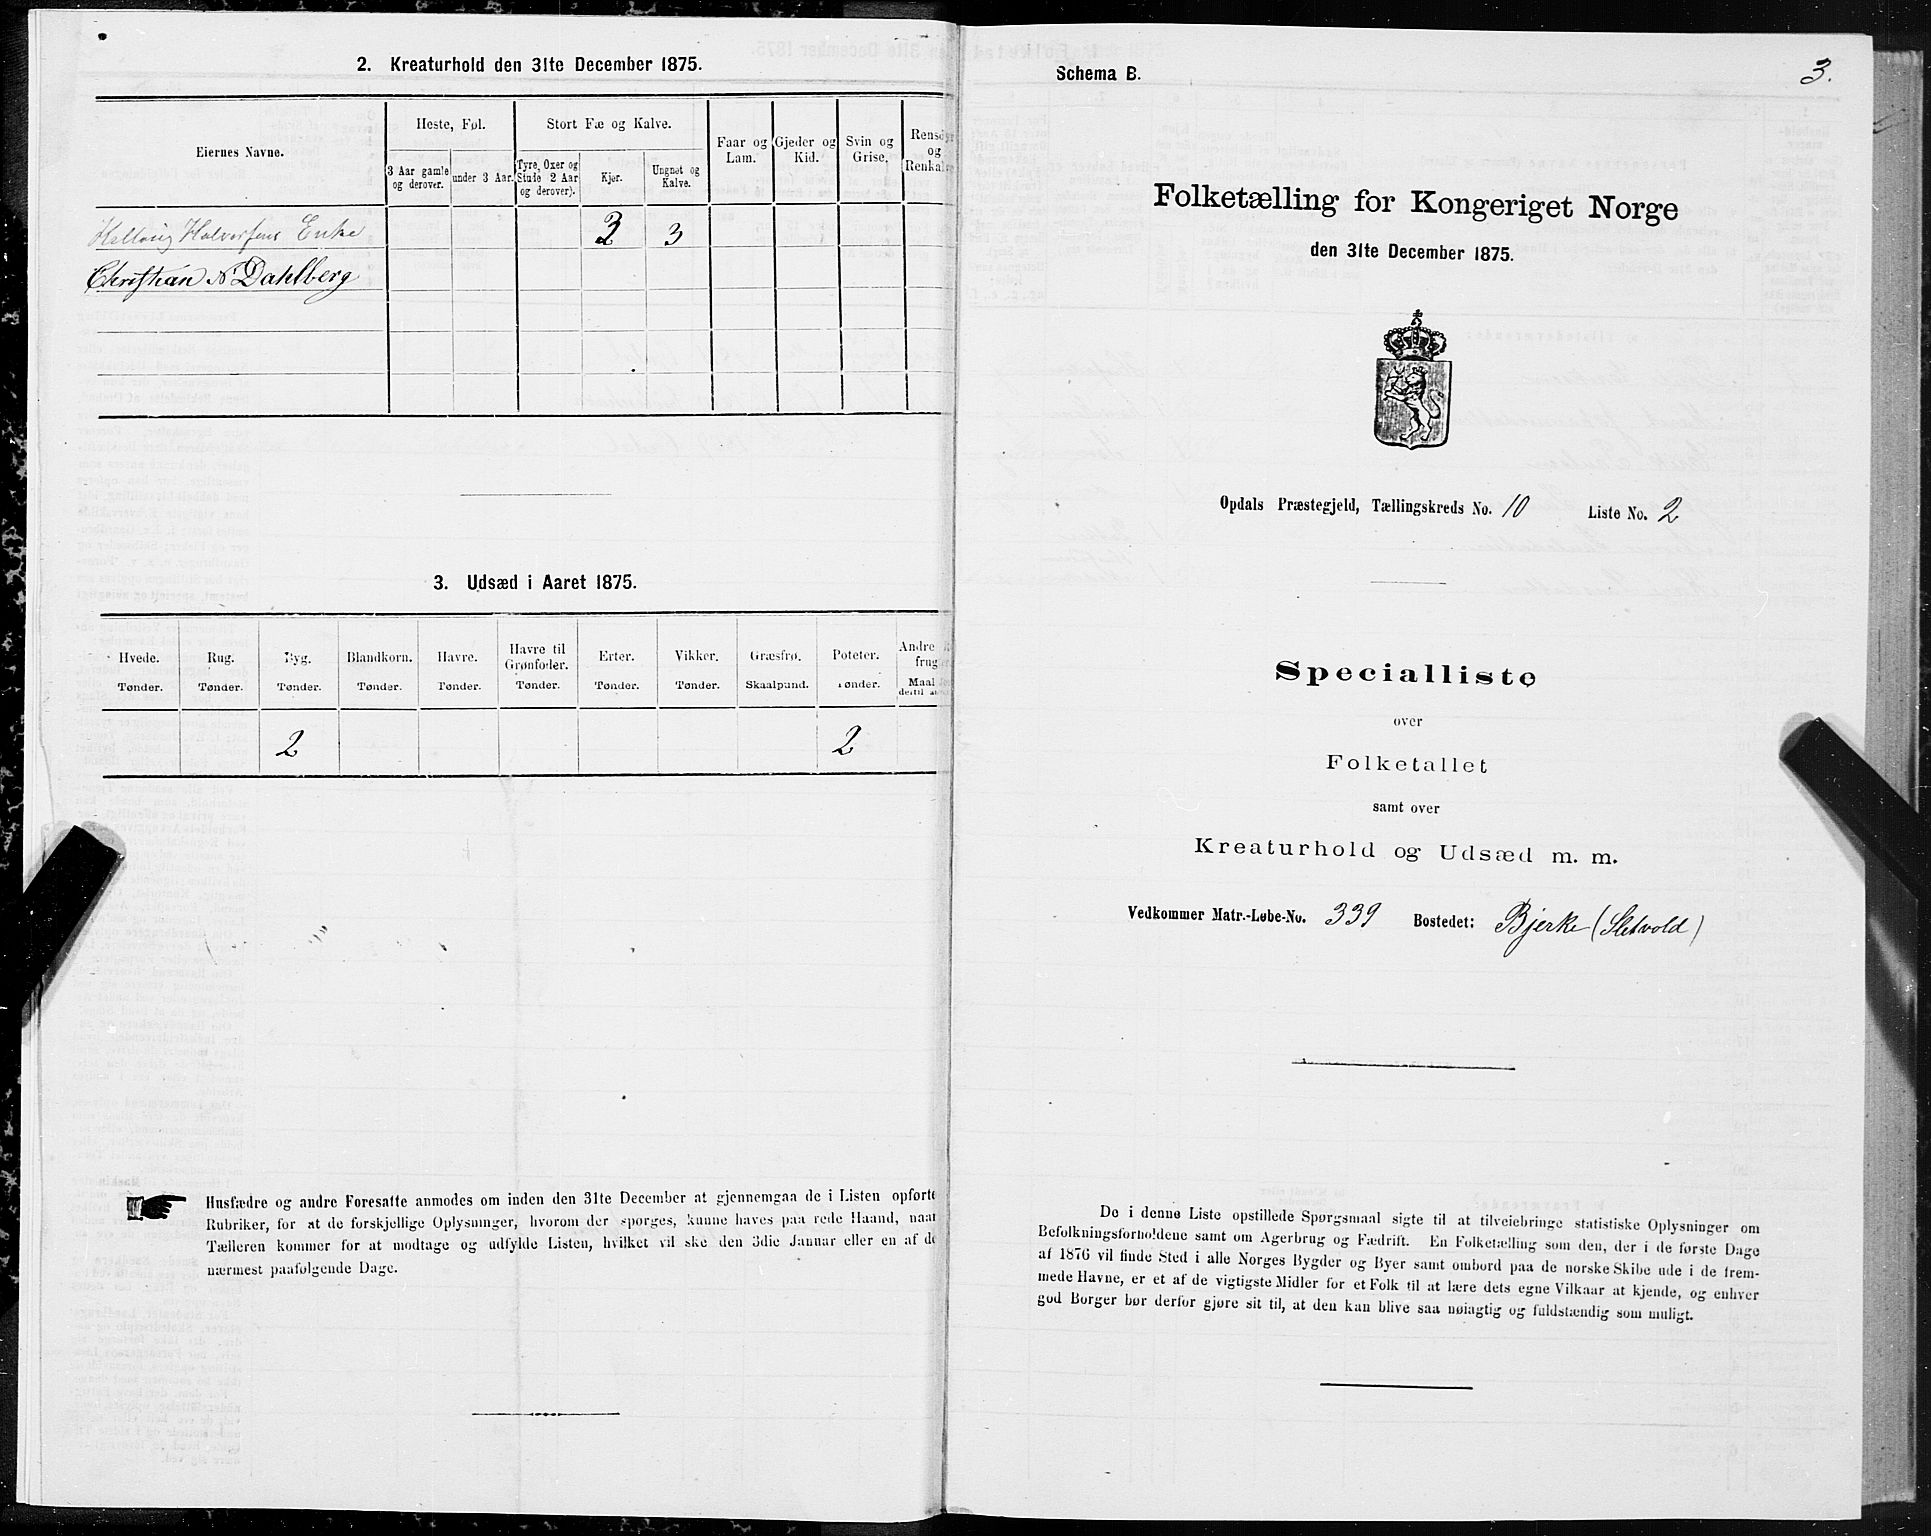 2. Kreaturhold den 31te December 1875.
Eiernes Navne.
Heste, Føl.
Stort Fæ og Kalve.
Faar og Lam.
Gjeder og Kid.
Svin og Grise.
og
3 Aar gamle og derover.
under 3 Aar.
Tyre, Oxer og Stude 2 Aar og derover).
Kjør.
Ungnøt og Kalve.
Halvorsens Enke 3
Christian N Dahlberg
3. Udsæd i Aaret 1875.
Hvede. Rug. Byg. Blandkorn. Havre. Havre til Grønfoder. Erter. Vikker. Græsfrø. Poteter. Andre
Tønder. Tønder. Tønder. Tønder. Tønder. Tønder. Tønder. Tønder. Skaalpund. Tønder. Maal
2 2
Husfædre og andre Foresatte anmodes om inden den 31te December at gjennemgaa de i Listen opførte
Rubriker, for at de forskjellige Oplysninger, hvorom der spørges, kunne haves paa rede Haand, naar
Tælleren kommer for at modtage og udfylde Listen, hvilket vil ske den 3die Januar eller en af de
nærmest paafølgende Dage.
Schema B.
3.
Folketælling for Kongeriget Norge
den 31te December 1875.
Opdals Præstegjeld, Tællingskreds No. 10 Liste No. 2
Specialliste
over
Folketallet
samt over
Kreaturhold og Udsæd m. m.
Vedkommer Matr.-Løbe-No. 339 Bostedet: Bjerke (Sletvold)
De i denne Liste opstillede Spørgsmaal sigte til at tilveiebringe statistiske Oplysninger om
Befolkningsforholdene samt om Agerbrug og Fædrift. En Folketælling som den, der i de første Dage
af 1876 vil finde Sted i alle Norges Bygder og Byer samt ombord paa de norske Skibe ude i de frem-
mede Havne, er et af de vigtigste Midler for et Folk til at lære dets egne Vilkaar at kjende, og enhver
god Borger bør derfor gjøre sit til, at den kan blive saa nøiagtig og fuldstændig som muligt.